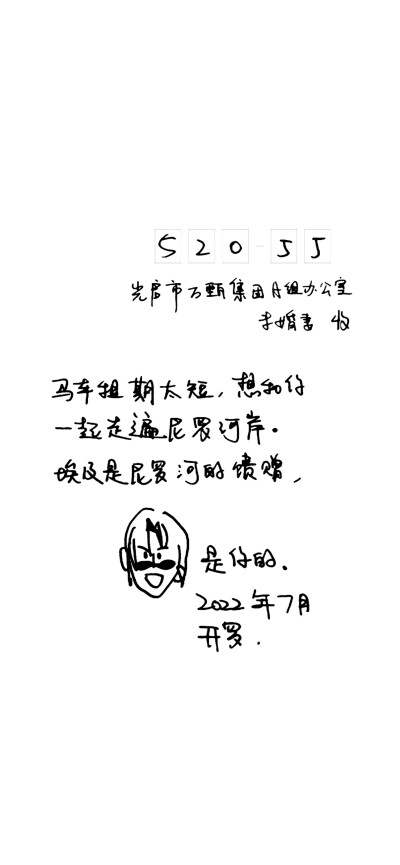 520-55
光启市万甄集团A组办公室
求婚书 收
马车租期太短，想和你
一起走遍尼罗河岸。
埃及是尼罗河的馈赠，
是你的。
2022年7月
开罗.